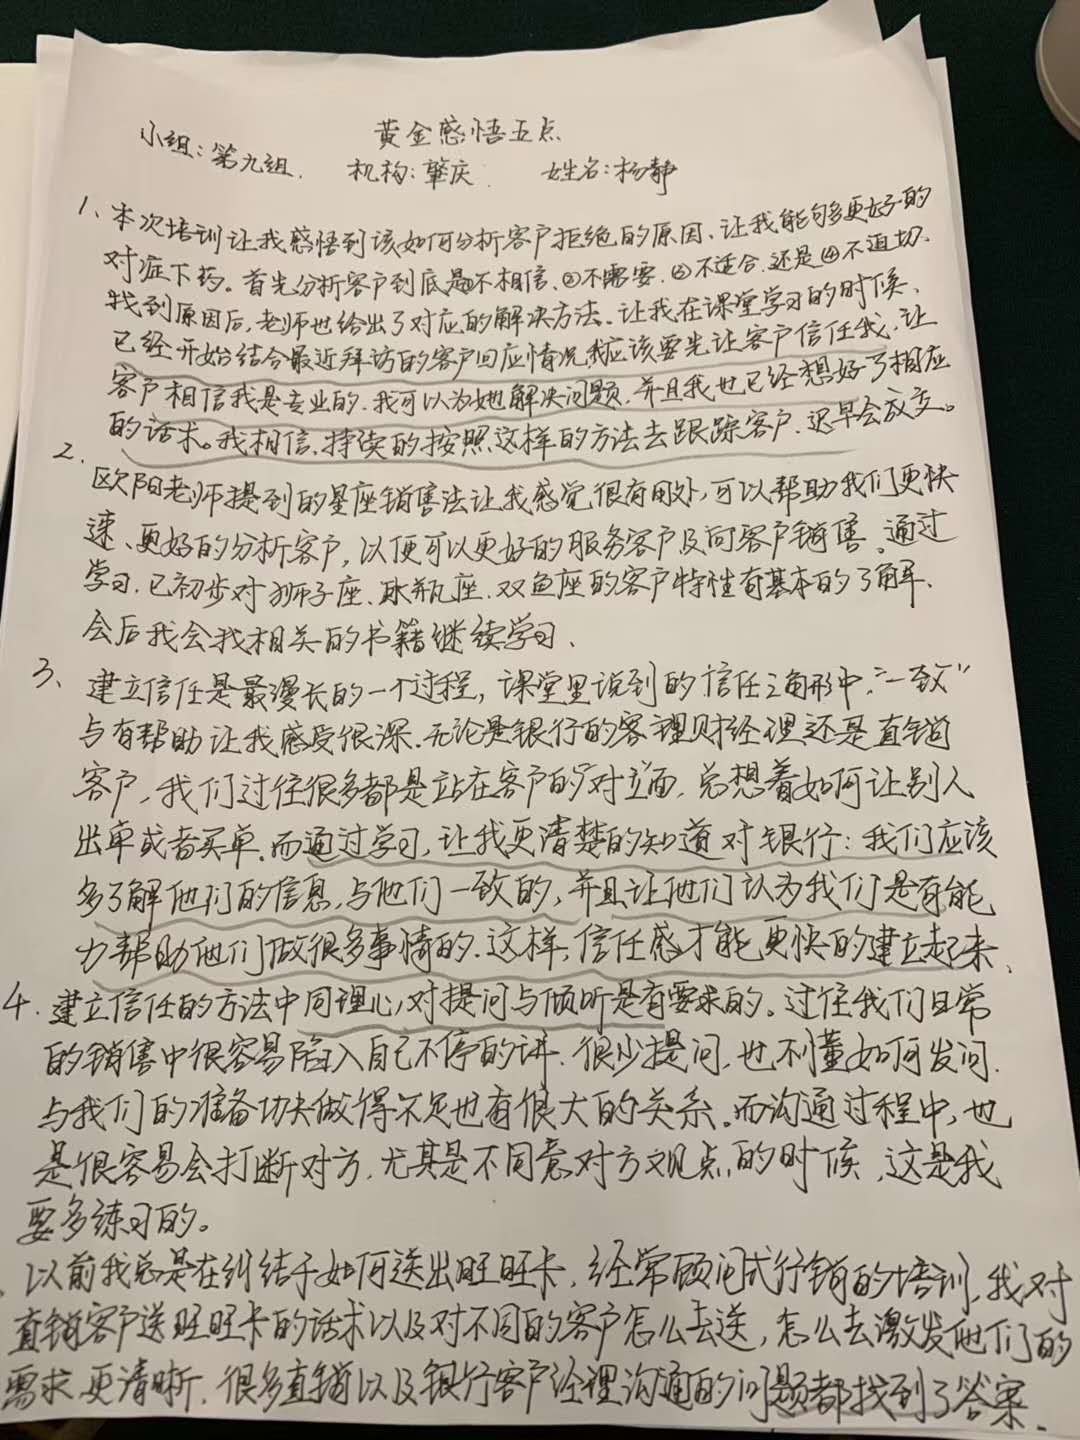 黄金感悟五点
小组:第九组. 机构:肇庆. 姓名:杨静
1、本次培训让我感悟到该如何分析客户拒绝的原因、让我能够更好的
对症下药。首先分析客户到底是①不相信、②不需要.③不适合.还是④不迫切.
找到原因后,老师也给出了对应的解决方法.让我在课堂学习的时候、
已经开始结合最近拜访的客户回应情况,我应该要先让客户信任我,让
客户相信我是专业的.我可以为她解决问题.并且我也已经想好了相应
的话术。我相信.持续的按照这样的方法去跟踪客户.迟早会成交。
2、欧阳老师提到的星座销售法让我感觉很有用处,可以帮助我们更快
速、更好的分析客户,以便可以更好的服务客户及向客户销售.通过
学习.已初步对狮子座.水瓶座.双鱼座的客户特性有基本的了解.
会后我会找相关的书籍继续学习.
3、建立信任是最漫长的一个过程,课堂里说到的信任三角形中:"一致"
与有帮助让我感受很深.无论是银行的客理财经理还是直销
客户,我们过往很多都是站在客户的"对立"面.总想着如何让别人
出单或者买单.而通过学习,让我更清楚的知道对银行:我们应该
多了解他们的信息,与他们一致的,并且让他们认为我们是有能
力帮助他们做很多事情的.这样,信任感才能更快的建立起来.
4.建立信任的方法中同理心,对提问与倾听是有要求的。过往我们日常
的销售中很容易陷入自己不停的讲.很少提问.也不懂如何发问.
与我们的准备功夫做得不足也有很大的关系.而沟通过程中,也
是很容易会打断对方.尤其是不同意对方观点的时候,这是我
要多练习的。
、以前我总是在纠结于如何送出旺旺卡.经常顾问式行销的培训,我对
直销客户送旺旺卡的话术以及对不同的客户怎么去送,怎么去激发他们的
需求更清晰.很多直销以及银行客户经理沟通的问题都找到了答案.